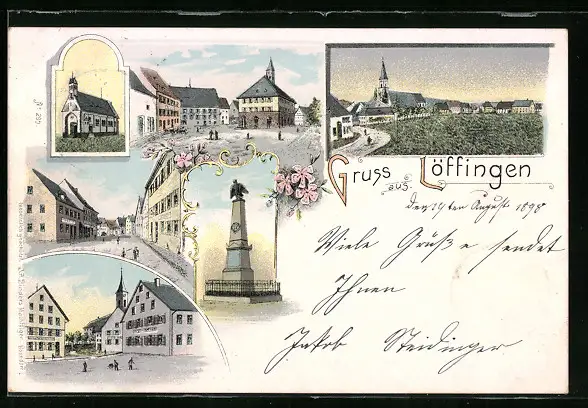 Gruss aus Löffingen
den 14ten August 1898
Viele Grüße sendet
Ihnen
Jakob Steidinger